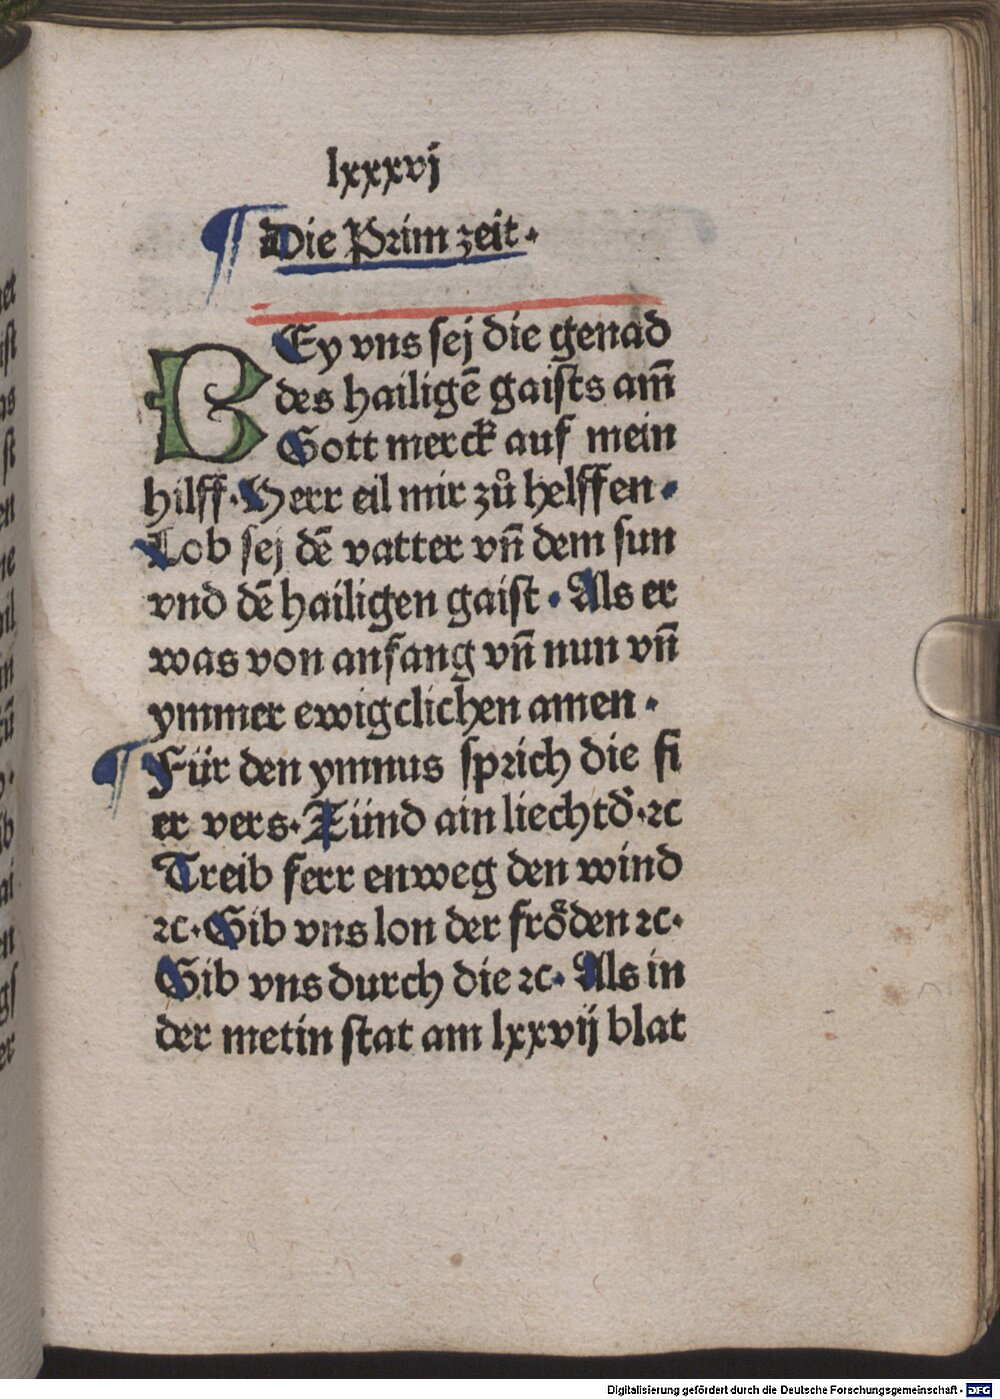 lxxxvj
¶ Die Prim zeit·
BEy vns sej die genad
des hailigē gaists am̄
Gott merck auf mein
hilff·Herr eil mir zů helffen·
Lob sej dē vatter vn̄ dem sun
vnd dē hailigen gaist·Als er
was von anfang vn̄ nun vn̄
ymmer ewigclichen amen·
¶ Für den ymnus sprich die fi
er vers·Zünd ain liecht d̄·ꝛc
Treib ferr enweg den wind
ꝛc·Gib vns lon der fröden ꝛc·
Gib vns durch die ꝛc·Als in
der metin stat am lxxvij blat
Digitalisierung gefördert durch die Deutsche Forschungsgemeinschaft - DFG